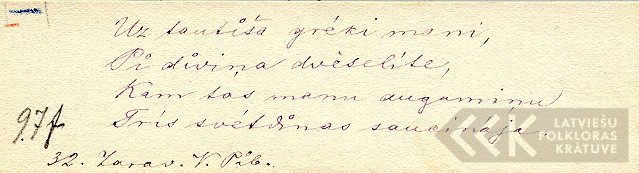 Uz tautiša grėki mani,
Pi diviņa dvėselite,
Kam tas manu augumiņu
Tris svėtdinas saucinája.
32. Zarav. V. Pib.
LATVIEŠU
FOLKLORAS
KRĀTUVE